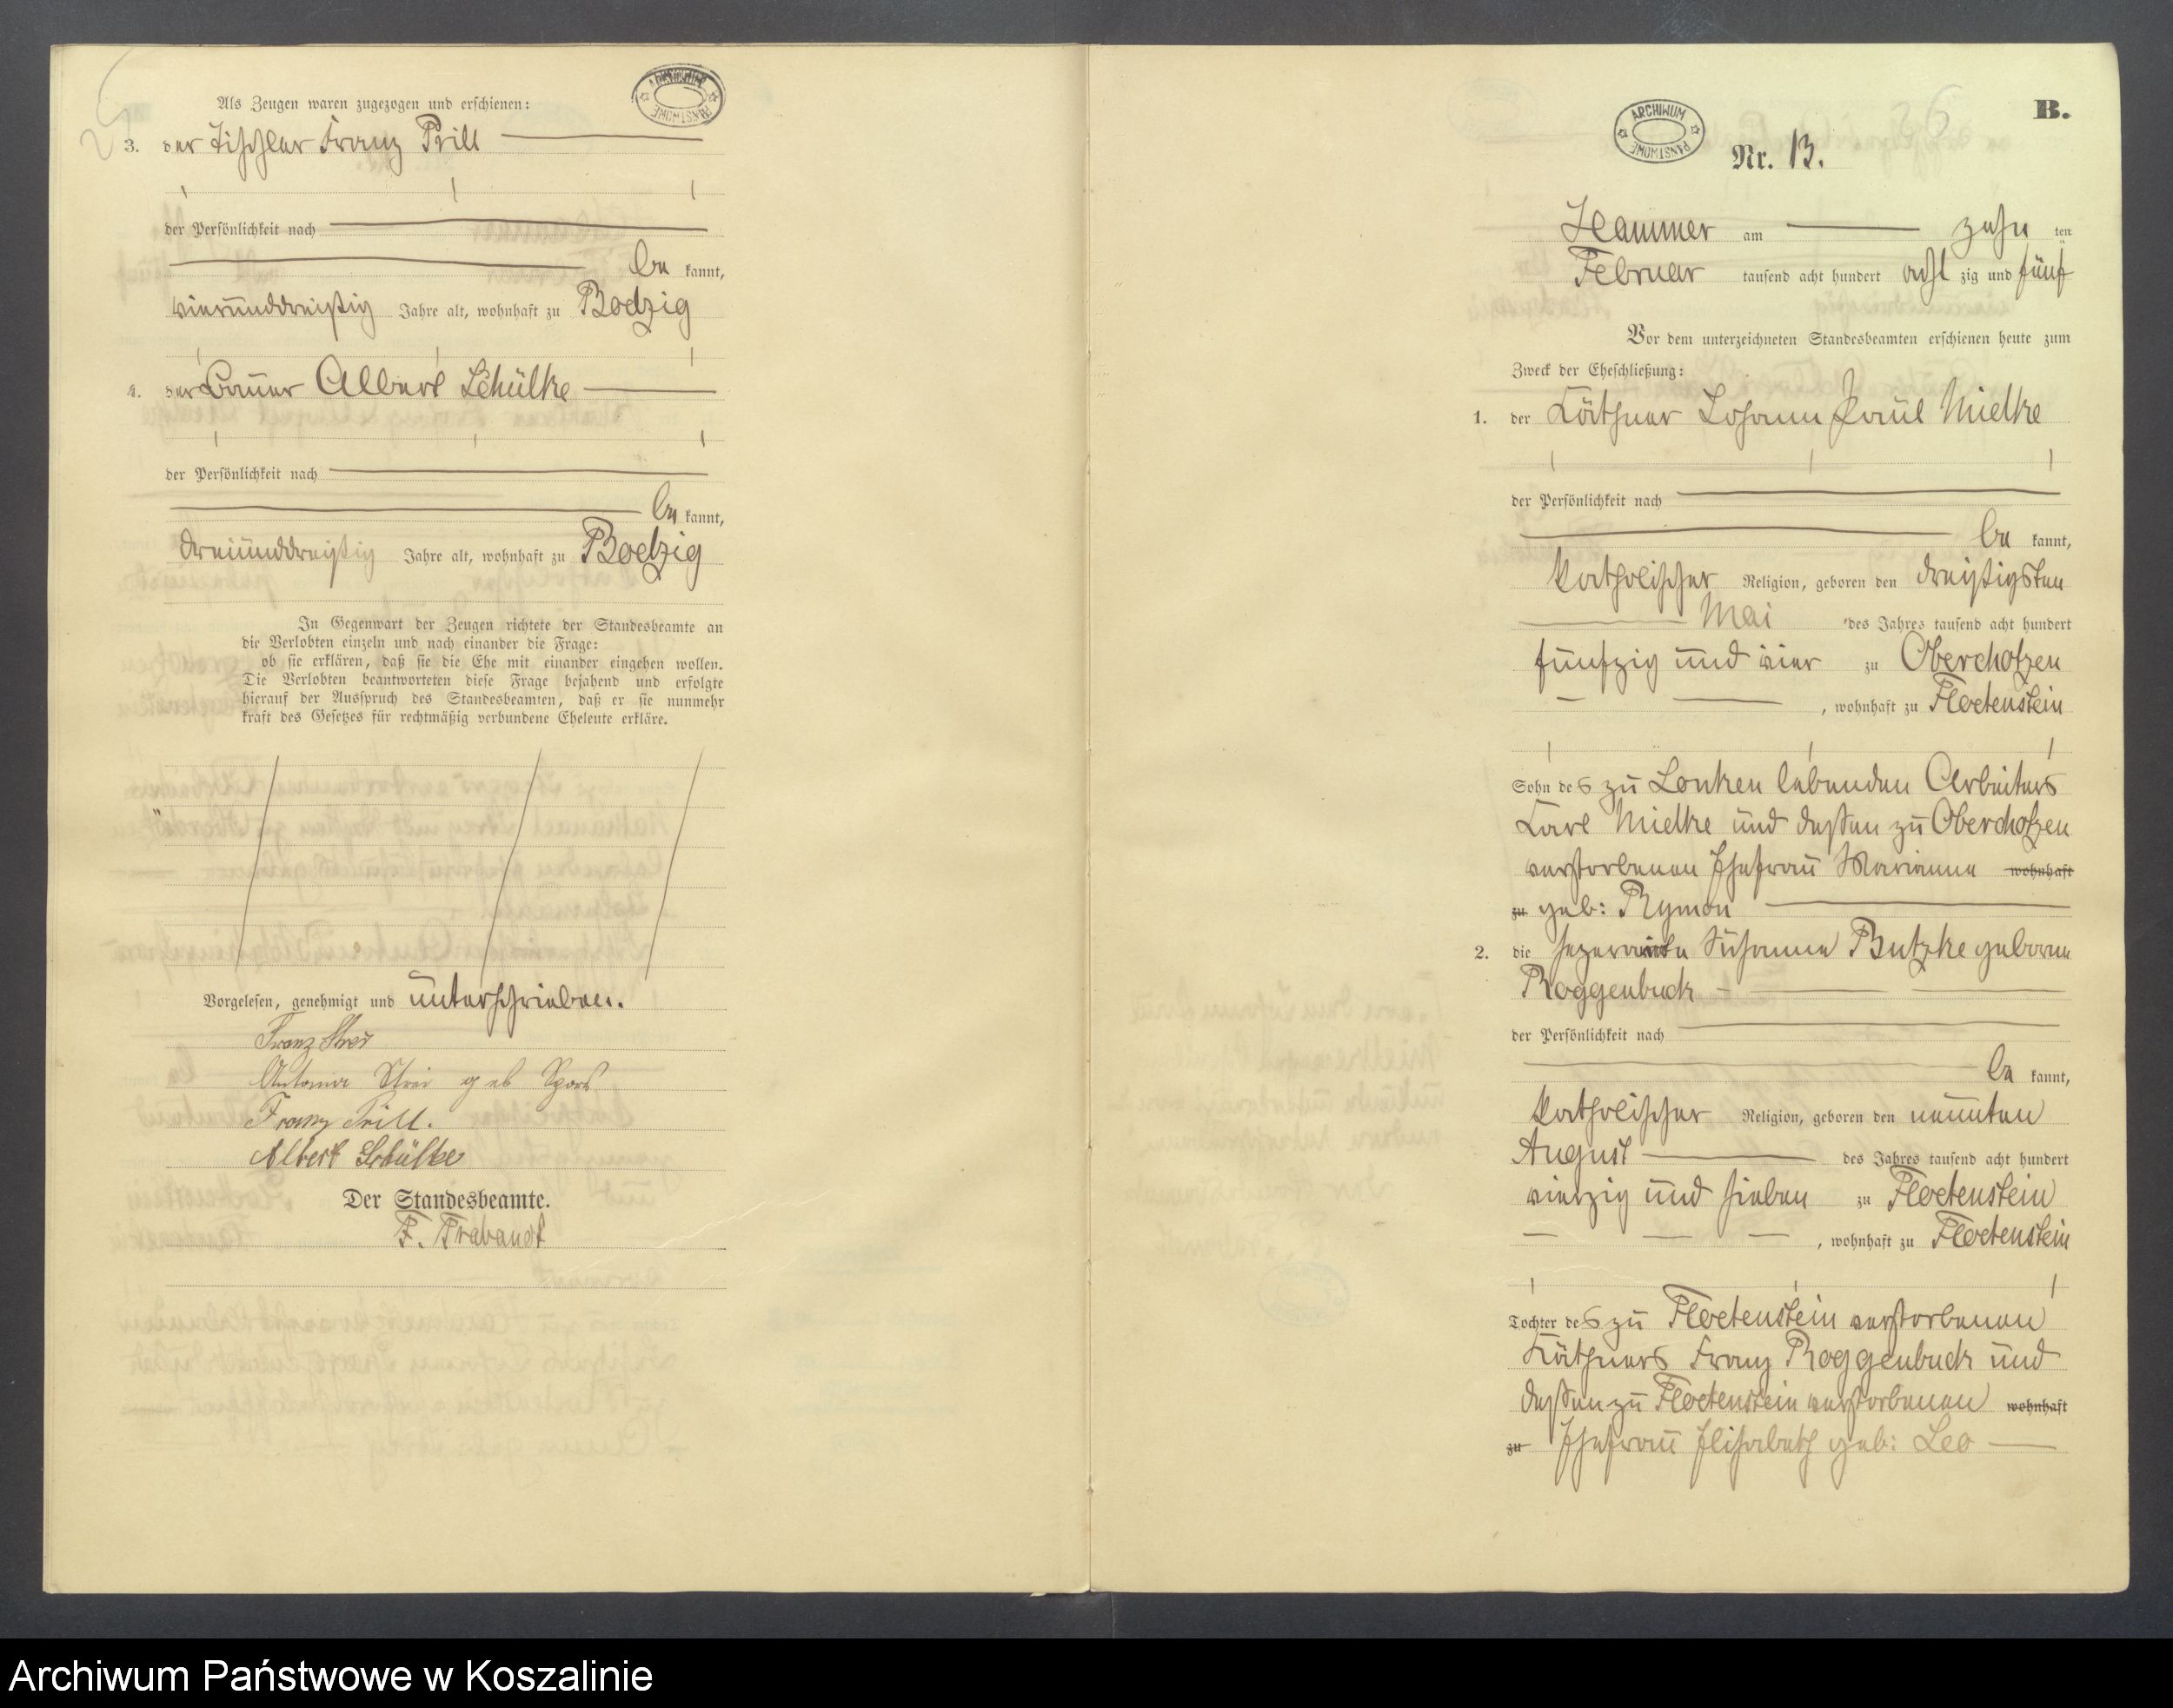 Als Zeugen waren zugezogen und erschienen:
3. der Tischler Franz Prill
der Persönlichkeit nach
be kannt,
vierunddreißig Jahre alt, wohnhaft zu Boelzig
4. der Bauer Albert Schülke
der Persönlichkeit nach
be kannt,
dreiunddreißig Jahre alt, wohnhaft zu Boelzig
In Gegenwart der Zeugen richtete der Standesbeamte an
die Verlobten einzeln und nach einander die Frage:
ob sie erklären, daß sie die Ehe mit einander eingehen wollen.
Die Verlobten beantworteten diese Frage bejahend und erfolgte
hierauf der Ausspruch des Standesbeamten, daß er sie nunmehr
kraft des Gesetzes für rechtmäßig verbundene Eheleute erkläre.
Vorgelesen, genehmigt und unterschrieben.
Franz
Antonie geb
Franz Prill.
Albert Schülke
Der Standesbeamte.
F. Trabandt
ARCHIWUM PAŃSTWOWE
B.
ARCHIWUM PAŃSTWOWE
Nr. 13.
Hammer am zehn ten
Februar tausend acht hundert acht zig und fünf
Vor dem unterzeichneten Standesbeamten erschienen heute zum
Zweck der Eheschließung:
1. der Käthner Johann Paul Mielke
der Persönlichkeit nach
be kannt,
katholischer Religion, geboren den dreißigsten
Mai des Jahres tausend acht hundert
fünfzig und vier zu Oberchotzen
, wohnhaft zu Floetenstein
Sohn des zu Lonken lebenden Arbeiters
Carl Mielke und dessen zu Oberchotzen
verstorbenen Ehefrau Marianna wohnhaft
zu geb: Rymon
2. die Susanna Butzke geborene
Roggenbuck
der Persönlichkeit nach
be kannt,
katholischer Religion, geboren den neunten
August des Jahres tausend acht hundert
vierzig und sieben zu Floetenstein
, wohnhaft zu Floetenstein
Tochter des zu Floetenstein verstorbenen
Käthners Franz Roggenbuck und
dessen zu Floetenstein verstorbenen wohnhaft
zu Ehefrau Elisabeth geb: Leo
Archiwum Państwowe w Koszalinie